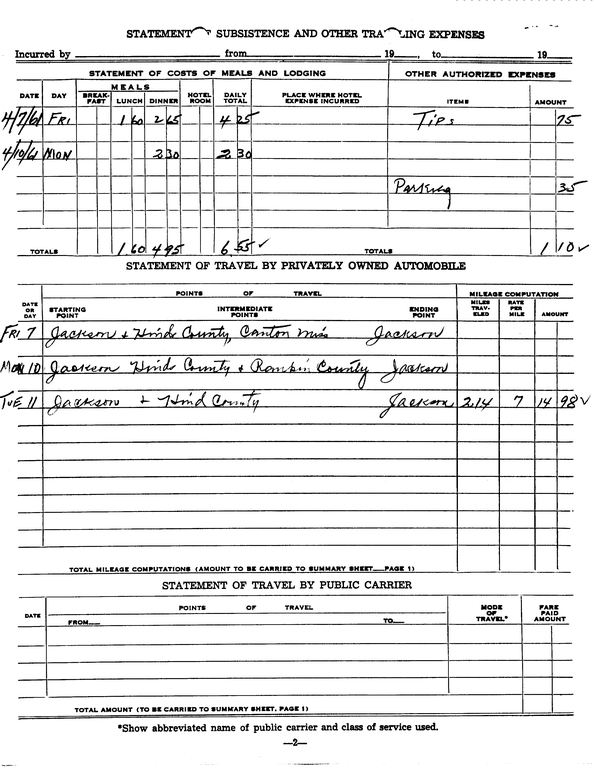 STATEMENT OF SUBSISTENCE AND OTHER TRA LING EXPENSES
Incurred by from 19 , to 19
STATEMENT OF COSTS OF MEALS AND LODGING OTHER AUTHORIZED EXPENSES
DATE DAY MEALS HOTEL ROOM DAILY TOTAL PLACE WHERE HOTEL EXPENSE INCURRED ITEMS AMOUNT
BREAK-FAST LUNCH DINNER
4/7/61 FRI 1 60 2 65 4 25 Tips 75
4/10/61 MON 2 30 2 30
Parking 35
TOTALS 1 60 4 95 6 55 ✓ TOTALS 1 10 ✓
STATEMENT OF TRAVEL BY PRIVATELY OWNED AUTOMOBILE
DATE OR DAY POINTS OF TRAVEL MILEAGE COMPUTATION
STARTING POINT INTERMEDIATE POINTS ENDING POINT MILES TRAV-ELED RATE PER MILE AMOUNT
FRI 7 Jackson & Hind County, Canton Miss Jackson
MON 10 Jackson Hind County & Rankin County Jackson
TUE 11 Jackson & Hind County Jackson 214 7 14 98 ✓
TOTAL MILEAGE COMPUTATIONS (AMOUNT TO BE CARRIED TO SUMMARY SHEET—PAGE 1)
STATEMENT OF TRAVEL BY PUBLIC CARRIER
DATE POINTS OF TRAVEL MODE OF TRAVEL* FARE PAID AMOUNT
FROM— TO—
TOTAL AMOUNT (TO BE CARRIED TO SUMMARY SHEET, PAGE 1)
*Show abbreviated name of public carrier and class of service used.
—2—